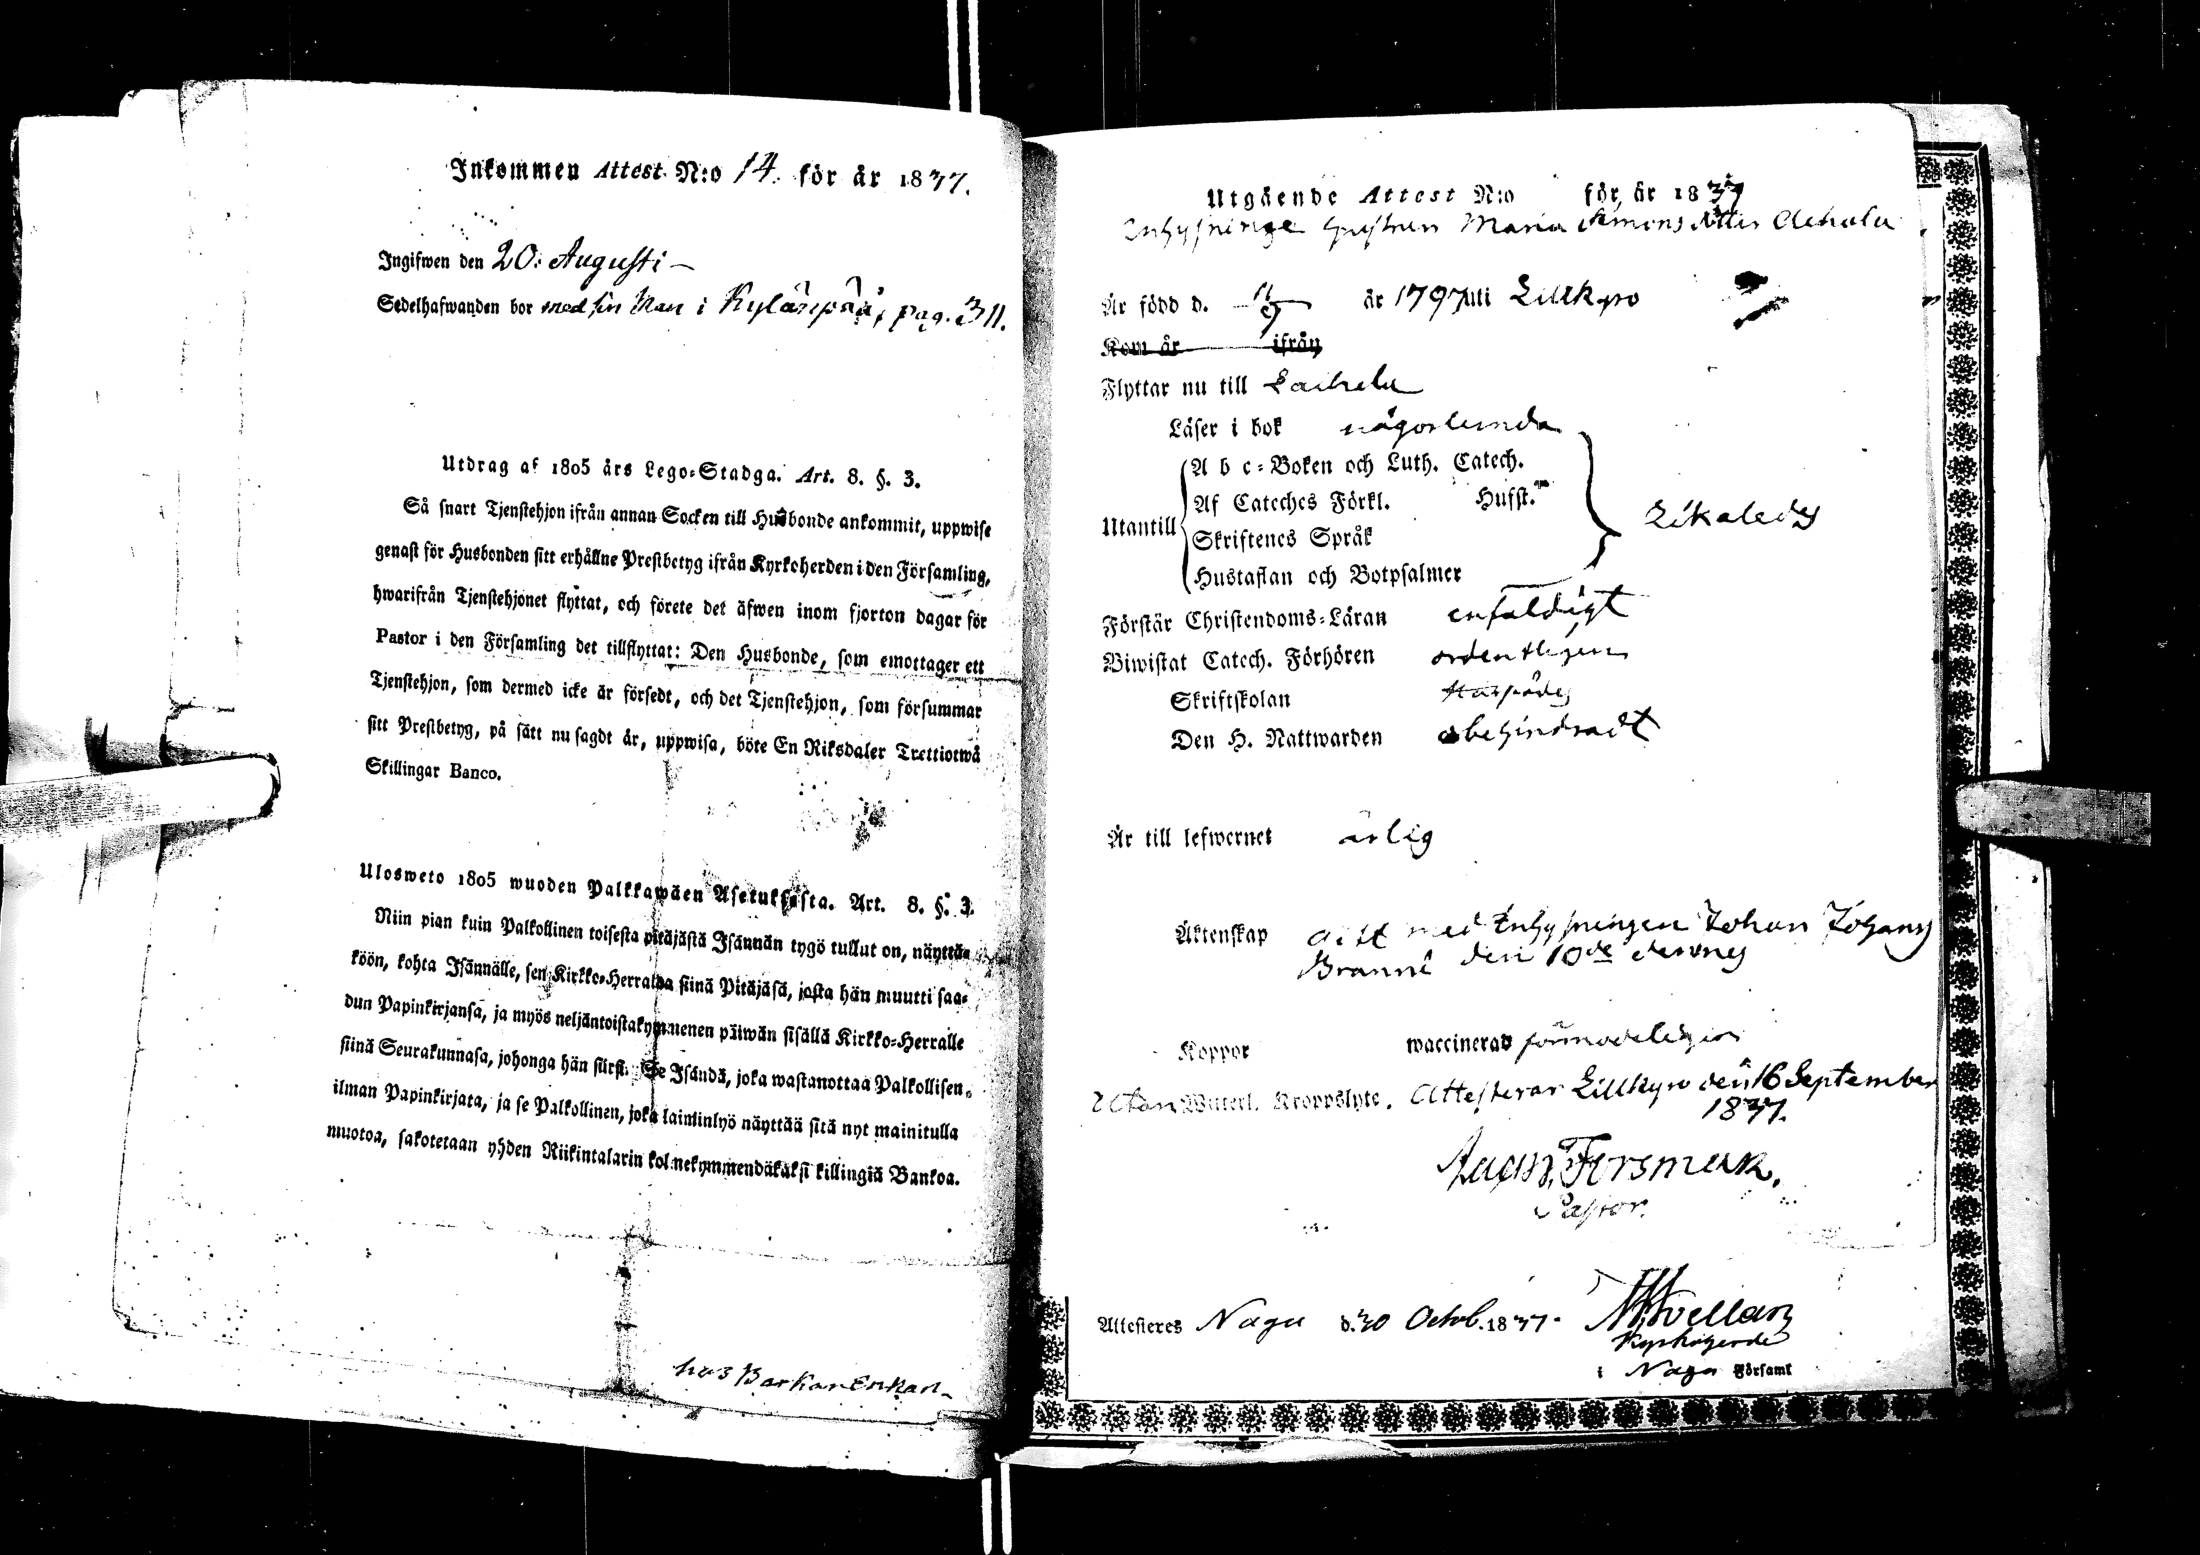 Inkommen Attest N:o 14. för år 1837.
Ingifwen den 20. Augusti –
Sedelhafwanden bor med sin Man i Kylänpää, pag. 311.
Utdrag af 1805 års Lego-Stadga. Art. 8. §. 3.
Så snart Tjenstehjon ifrån annan Socken till Husbonde ankommit, uppwise
genast för Husbonden sitt erhållne Prestbetyg ifrån Kyrkoherden i den Församling,
hwarifrån Tjenstehjonet flyttat, och förete det äfwen inom fjorton dagar för
Pastor i den Församling det tillflyttat: Den Husbonde, som emottager ett
Tjenstehjon, som dermed icke är försedt, och det Tjenstehjon, som försummar
sitt Prestbetyg, på sätt nu sagdt är, uppwisa, böte En Riksdaler Trettiotwå
Skillingar Banco.
Ulosweto 1805 wuoden Palkkawäen Asetuksesta. Art. 8. §. 3.
Niin pian kuin Palkollinen toisesta pitäjästä Isännän tygö tullut on, näyttä-
köön, kohta Isännälle, sen Kirkko-Herralda siinä Pitäjäsä, josta hän muutti saa-
dun Papinkirjansa, ja myös neljäntoistakymmenen päiwän sisällä Kirkko-Herralle
siinä Seurakunnasa, johonga hän siirsi. Se Isändä, joka wastanottaa Palkollisen,
ilman Papinkirjata, ja se Palkollinen, joka laiminlyö näyttää sitä nyt mainitulla
muotoa, sakotetaan yhden Riikintalarin kolmekymmendäkaksi killingiä Bankoa.
Utgående Attest N:o för år 1837
Inhysinge Hustrun Maria Simons dotter
Är född d. 11/9 år 1797 uti Lillkyro
Kom år ifrån
Flyttar nu till Laihela
Läser i bok någorlunda
A b c-Boken och Luth. Catech.
Af Cateches Förkl. Husst.
Utantill
Skriftenes Språk
Likaledes
Hustaflan och Botpsalmer
Förstår Christendoms-Läran enfaldigt
Biwistat Catech. Förhören ordentligen
Skriftskolan
Den H. Nattwarden obehindradt
Är till lefwernet ärlig
Äktenskap Gift med Inhysingen Johan Johans
den 10de dennes
Koppor waccinerad förmodeligen
Utan Witterl. Kroppslyte. Attesterar Lillkyro den 16 September
1837.
Forsman.
Pastor.
Attesteres Nagu d. 30 Octob. 1837.
Kyrkoherde
i Nagu Församl